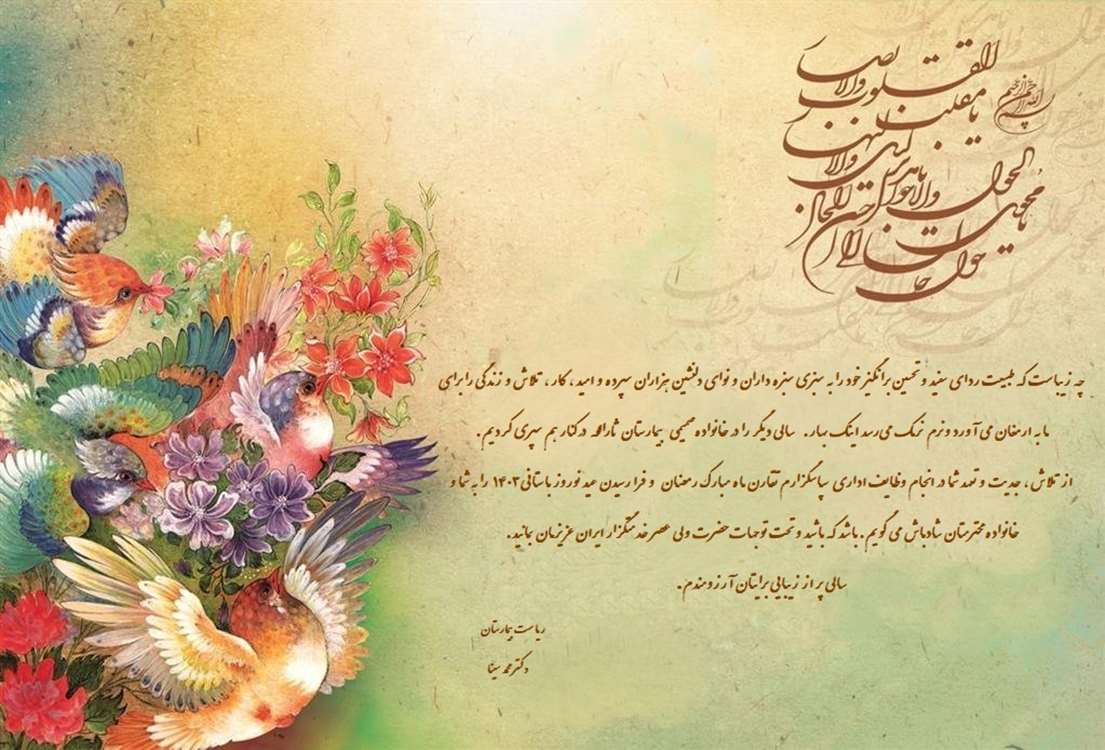 بسم الله الرحمن الرحیم
یا مقلب القلوب والابصار
یا مدبر اللیل والنهار
یا محول الحول والاحوال
حول حالنا الی احسن الحال
چه زیباست که طبیعت ردای سفید و تحسین برانگیز خود را به سبزی سبزه داران و نوای دلنشین هزاران سپرده و امید ، کار ، تلاش و زندگی را برای
ما به ارمغان می آورد و نرم نرمک می رسد اینک بهار . سالی دیگر را در خانواده صمیمی بیمارستان ثاراله در کنار هم سپری کردیم .
از تلاش ، جدیت و تعهد شما در انجام وظایف اداری سپاسگزارم تقارن ماه مبارک رمضان و فرا رسیدن عید نوروز باستانی ۱۴۰۳ را به شما و
خانواده محترمتان شادباش می گویم . باشد که باشید و تحت توجهات حضرت ولی عصر خدمتگزار ایران عزیزمان بمانید .
سالی پر از زیبایی برایتان آرزومندم .
ریاست بیمارستان
دکتر محمد سینا